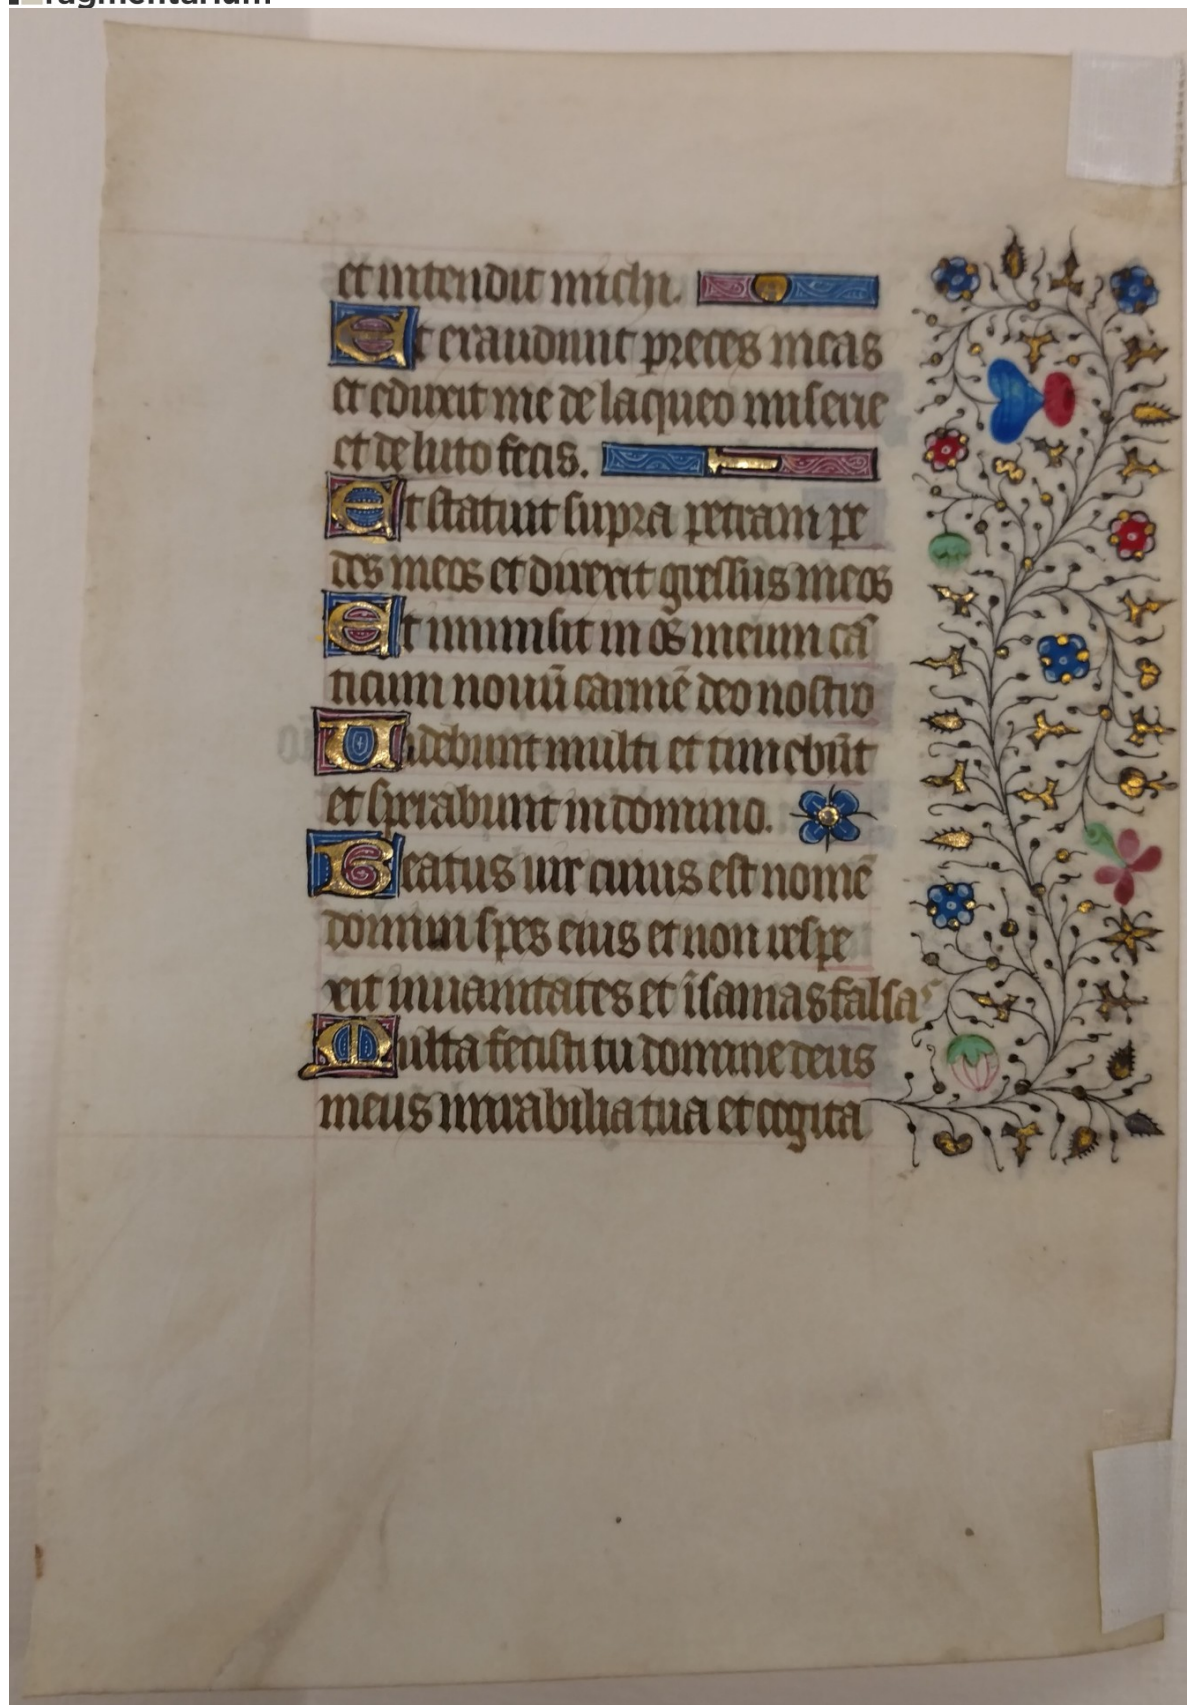 ragmentarium
et intendit michi.
Et exaudiuit preces meas
et eduxit me de laqueo miserie
et de luto fecis.
Et statuit supra petram pe
des meos et direxit gressus meos
Et immisit in os meum cā
ticum nouū carmē deo nostro
Uidebunt multi et timebūt
et sperabunt in domino.
Beatus uir cuius est nomē
domini spes eius et non respe
xit in uanitates et īsanias falsas
Multa fecisti tu domine deus
meus mirabilia tua et cogita